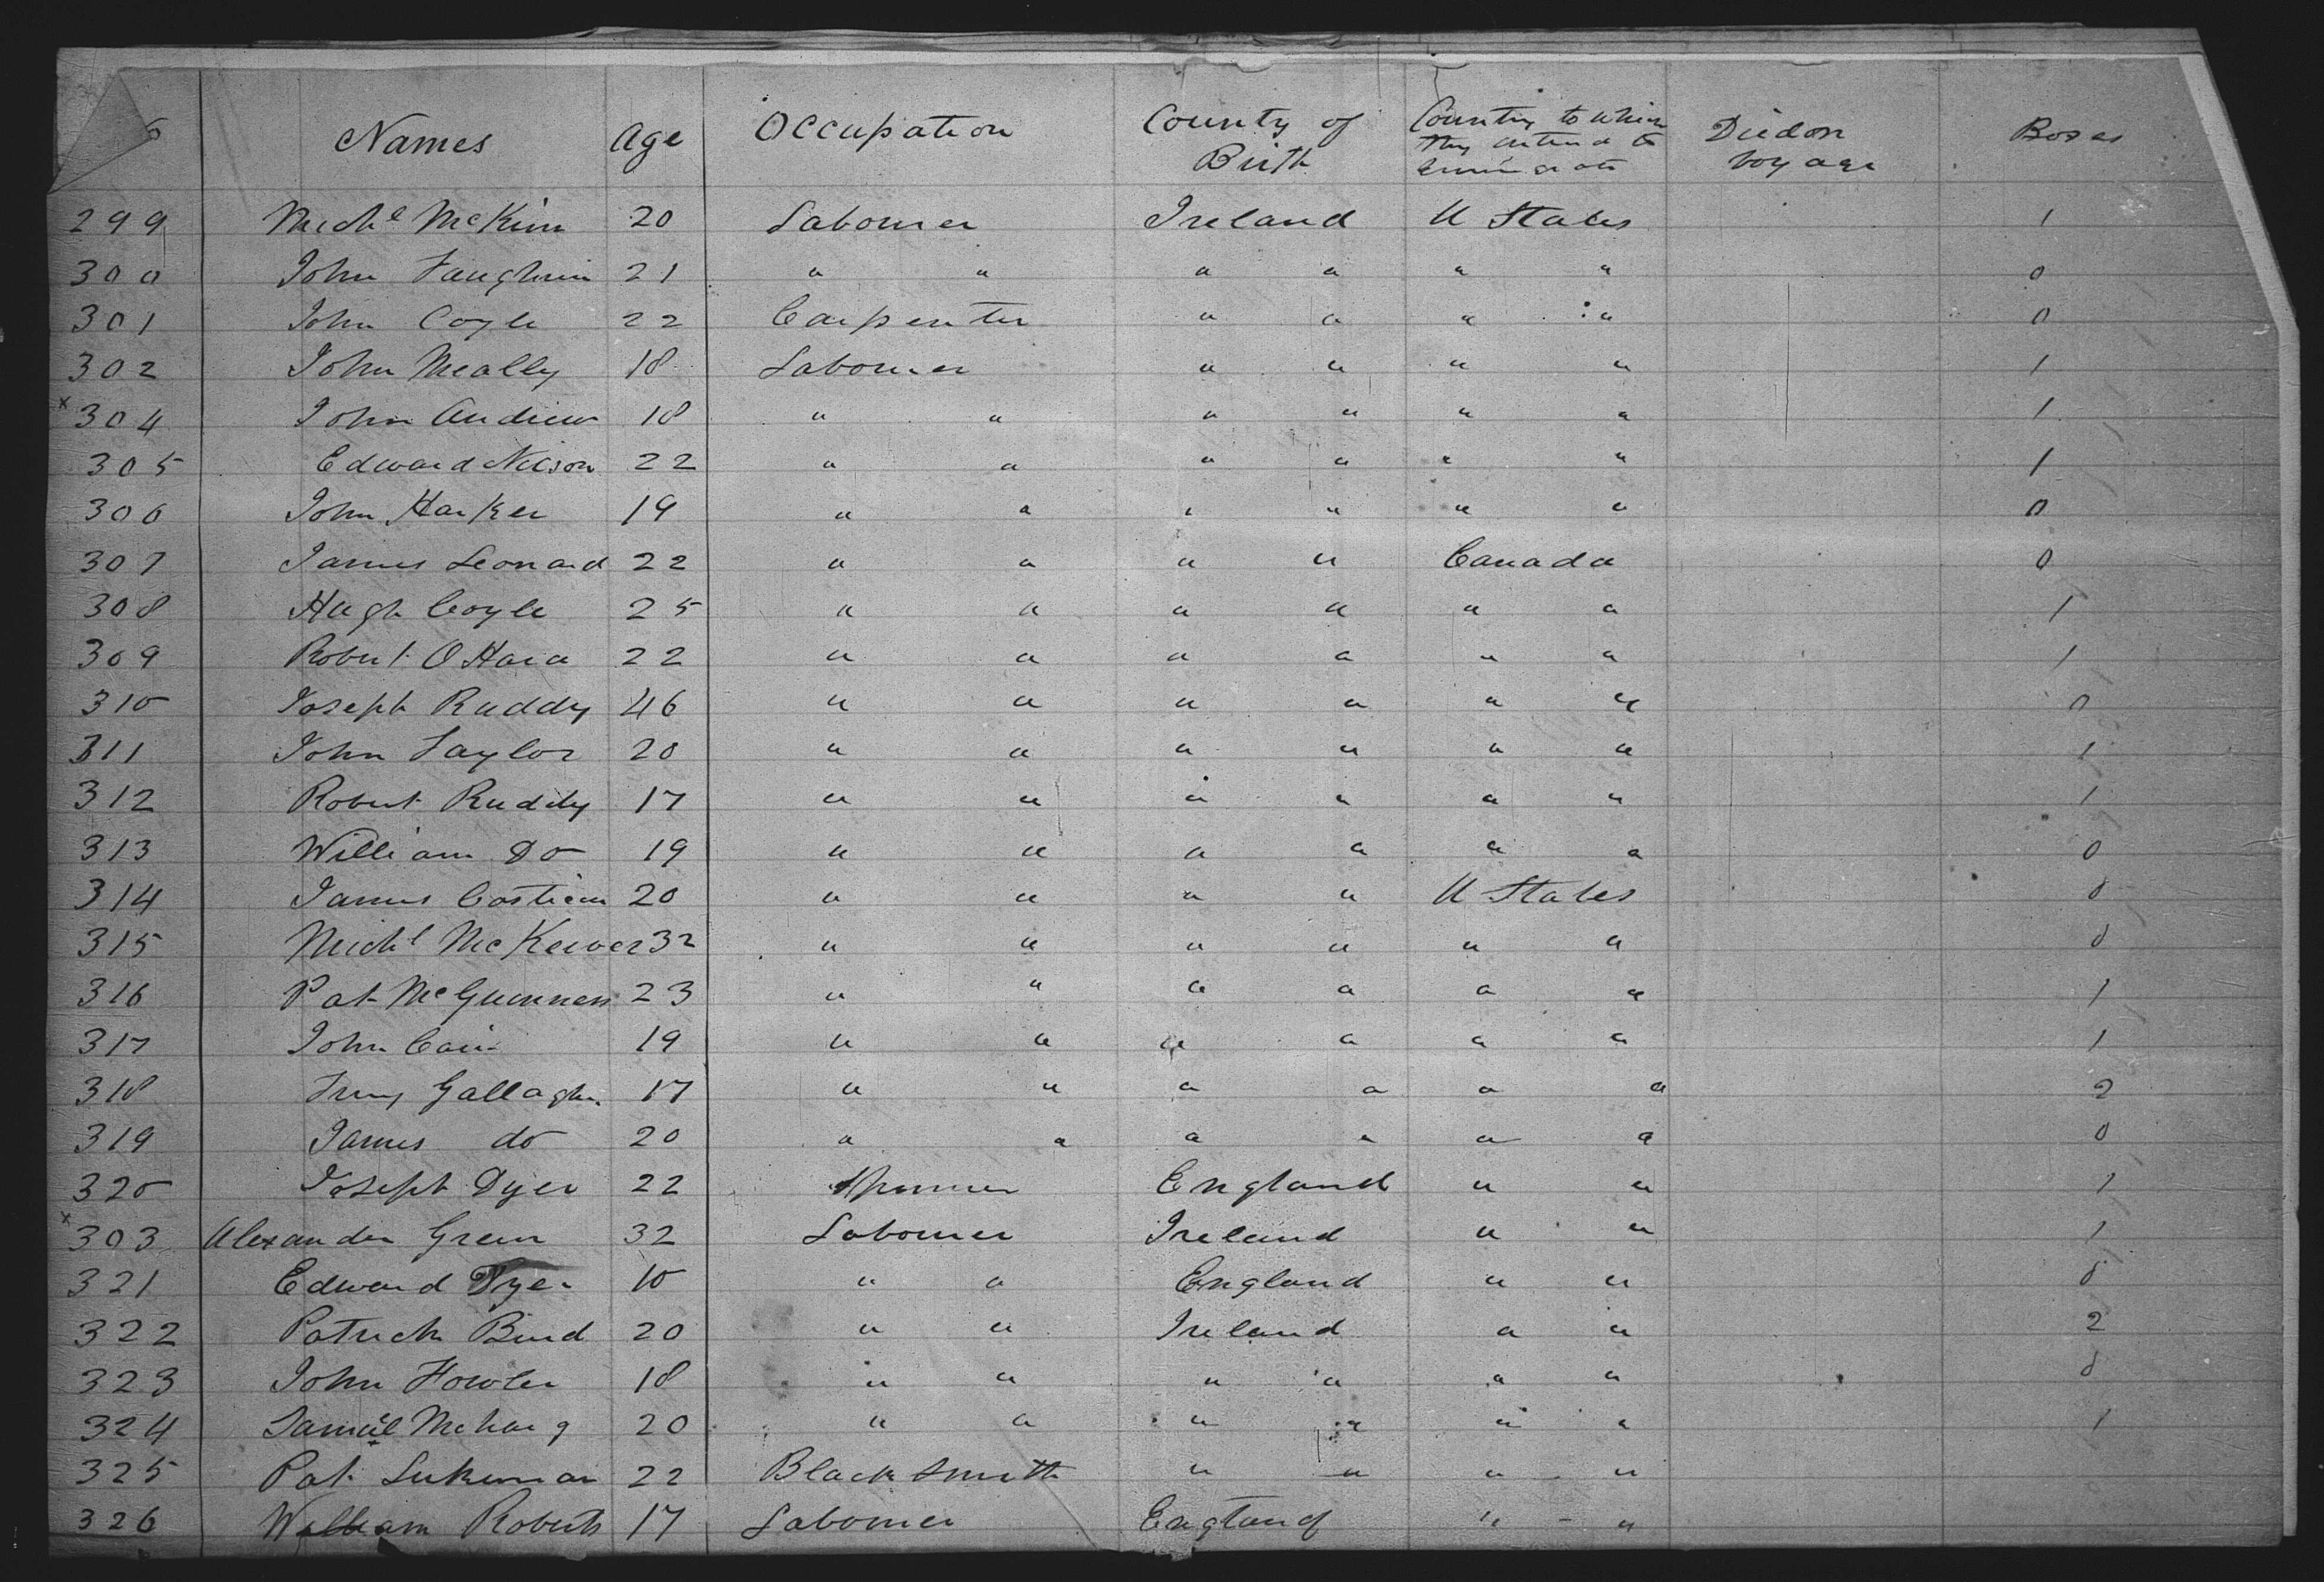 Names Age Occupation County of Birth Country to which they intend to Died on voyage Boxes
299 Michl McKim 20 Labourer Ireland U States 1
300 John 21 " " " " " " 0
301 John Coyle 22 Carpenter " " " " 0
302 John Meally 18 Labourer " " " " 1
x 304 John Andrew 18 " " " " " " 1
305 Edward Nelson 22 " " " " " " 1
306 John Harker 19 " " " " " " 0
307 James Leonard 22 " " " " Canada 0
308 Hugh Coyle 25 " " " " " " 1
309 Robert O Hara 22 " " " " " " 1
310 Joseph Ruddy 46 " " " " " " 0
311 John Taylor 20 " " " " " " 1
312 Robert Ruddy 17 " " " " " " 1
313 William Do 19 " " " " " " 0
314 James 20 " " " " U States 0
315 Michl McKeever 32 " " " " " " 0
316 Pat McGuinness 23 " " " " " " 1
317 John Cain 19 " " " " " " 1
318 Gallagher 17 " " " " " " 2
319 James do 20 " " " " " " 0
320 Joseph Dyer 22 England " " 1
x 303 Alexander Green 32 Labourer Ireland " " 1
321 Edward Dyer 10 " " England " " 0
322 Patrick 20 " " Ireland " " 2
323 John Fowler 18 " " " " " " 0
324 Samuel 20 " " " " " " 1
325 Pat 22 Blacksmith " " " "
326 William Roberts 17 Labourer England " "